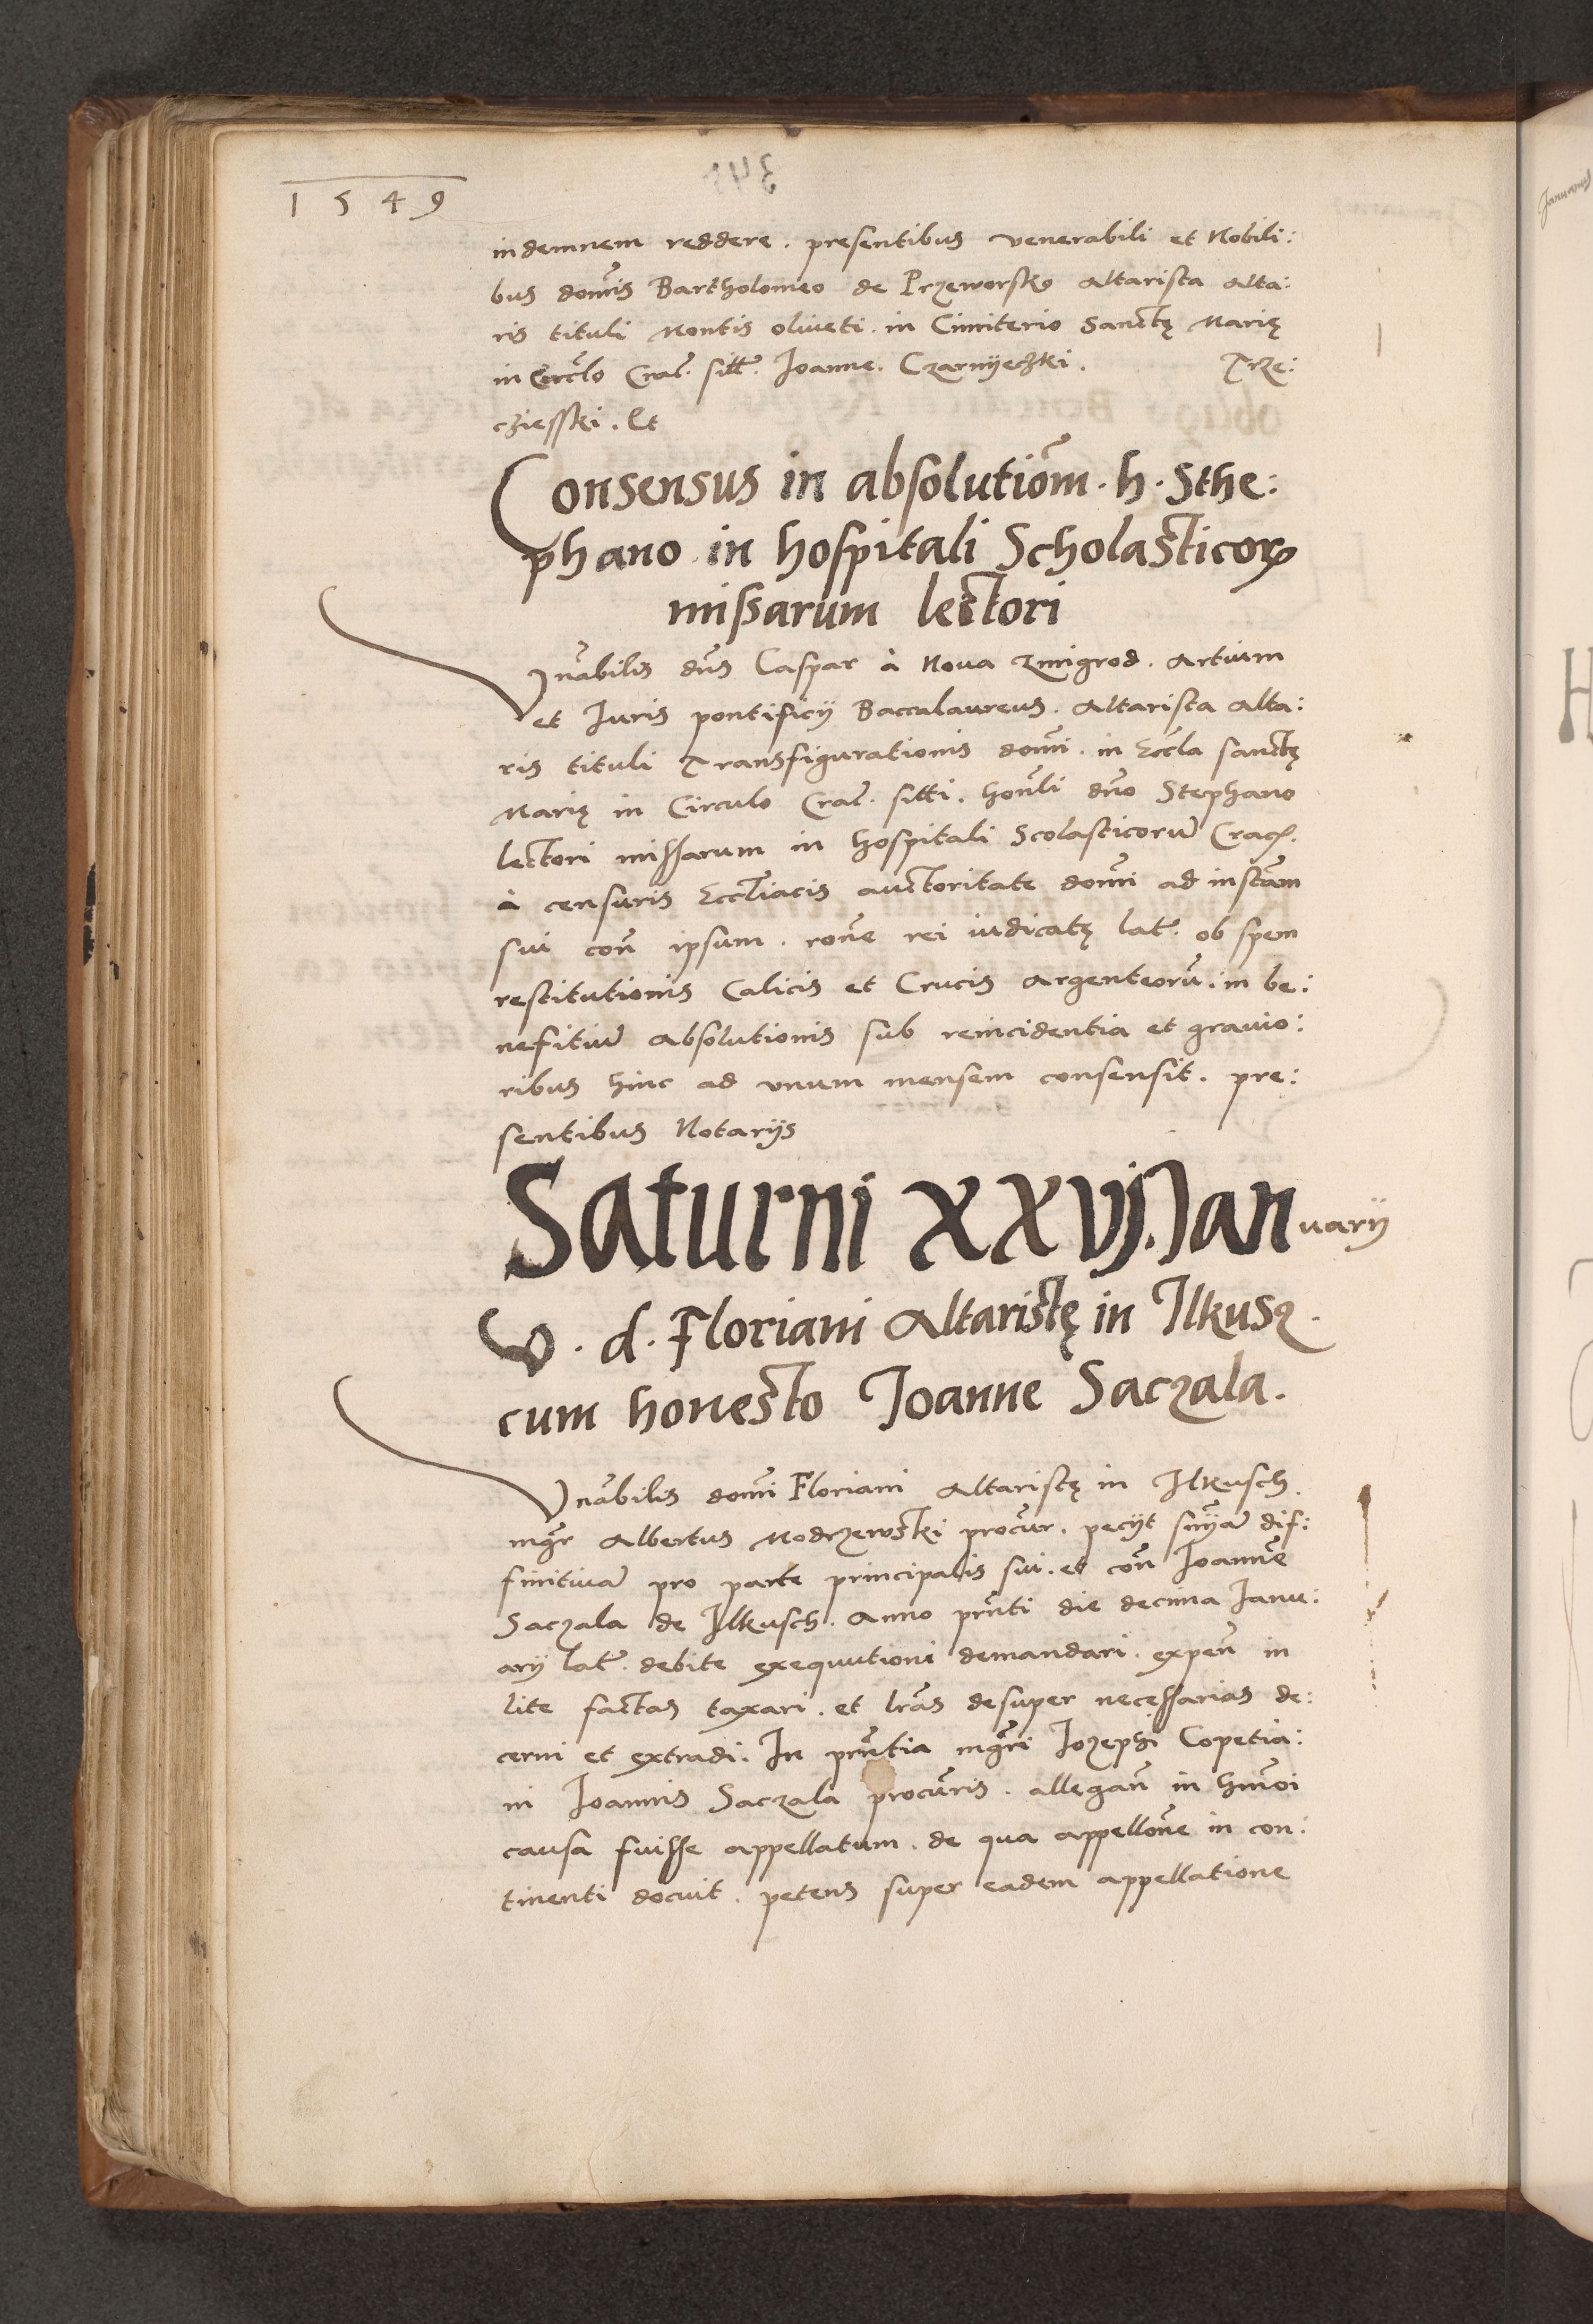 1549
indemnem reddere. presentibus venerabili et Nobili:
bus domĩs Bartholomeo de Przeworsko Altarista Alta:
ris tituli Montis oliveti. in Cimiterio Sanctę Marię
in Cerclo Crac̃. sitt̃. Joanne. Czarnyeczki. Trze:
cziesski. Et
Consensus in absolutiõm. h. Sthe:
phano in hospitali Scholasticorꝝ
missarum lectori
Vñabilis dñs Caspar à Nova Zmigrod. Artium
et Juris pontificij Baccalaureus. Altarista Alta:
ris tituli Transfigurationis domĩ. in Eccla sanctę
Marię in Circulo Crac̃. sitti. hoñli dño Stephano
lectori missarum in hospitali Scolasticorũ Crac̃.
à censuris Eccl̃iacis auctoritate domĩ ad instãm
sui coñ ipsum. rõne rei iudicatę lat̃. ob spem
restitutionis Calicis et Crucis Argenteorũ. in be:
nefitiũ Absolutionis sub reincidentia et gravio:
ribus hinc ad unum mensem consensit. pre:
sentibus Notarijs
Saturni XXVJ. Januarij
V. d. Floriani Altaristę in Ilkusz.
cum honesto Joanne Saczala.
Vñabilis domĩ Floriani Altaristę in Ilkusch.
mg̃r Albertus Modrzewski procur̃. pecijt sñiã dif:
finitivã pro parte principalis sui. et coñ Joannẽ
Saczala de Ilkusch. Anno pr̃nti die decima Janu:
arij lat̃. debite exequutioni demandari. expeñ in
lite factas taxari. et lr̃as desuper necessarias de:
cerni et extradi. In pr̃ntia mg̃ri Jozephi Copetia:
ni Joannis Saczala procur̃is. allegañ in hmõi
causa fuisse appellatum. de qua appellõne in con:
tinenti docuit. petens super eadem appellatione